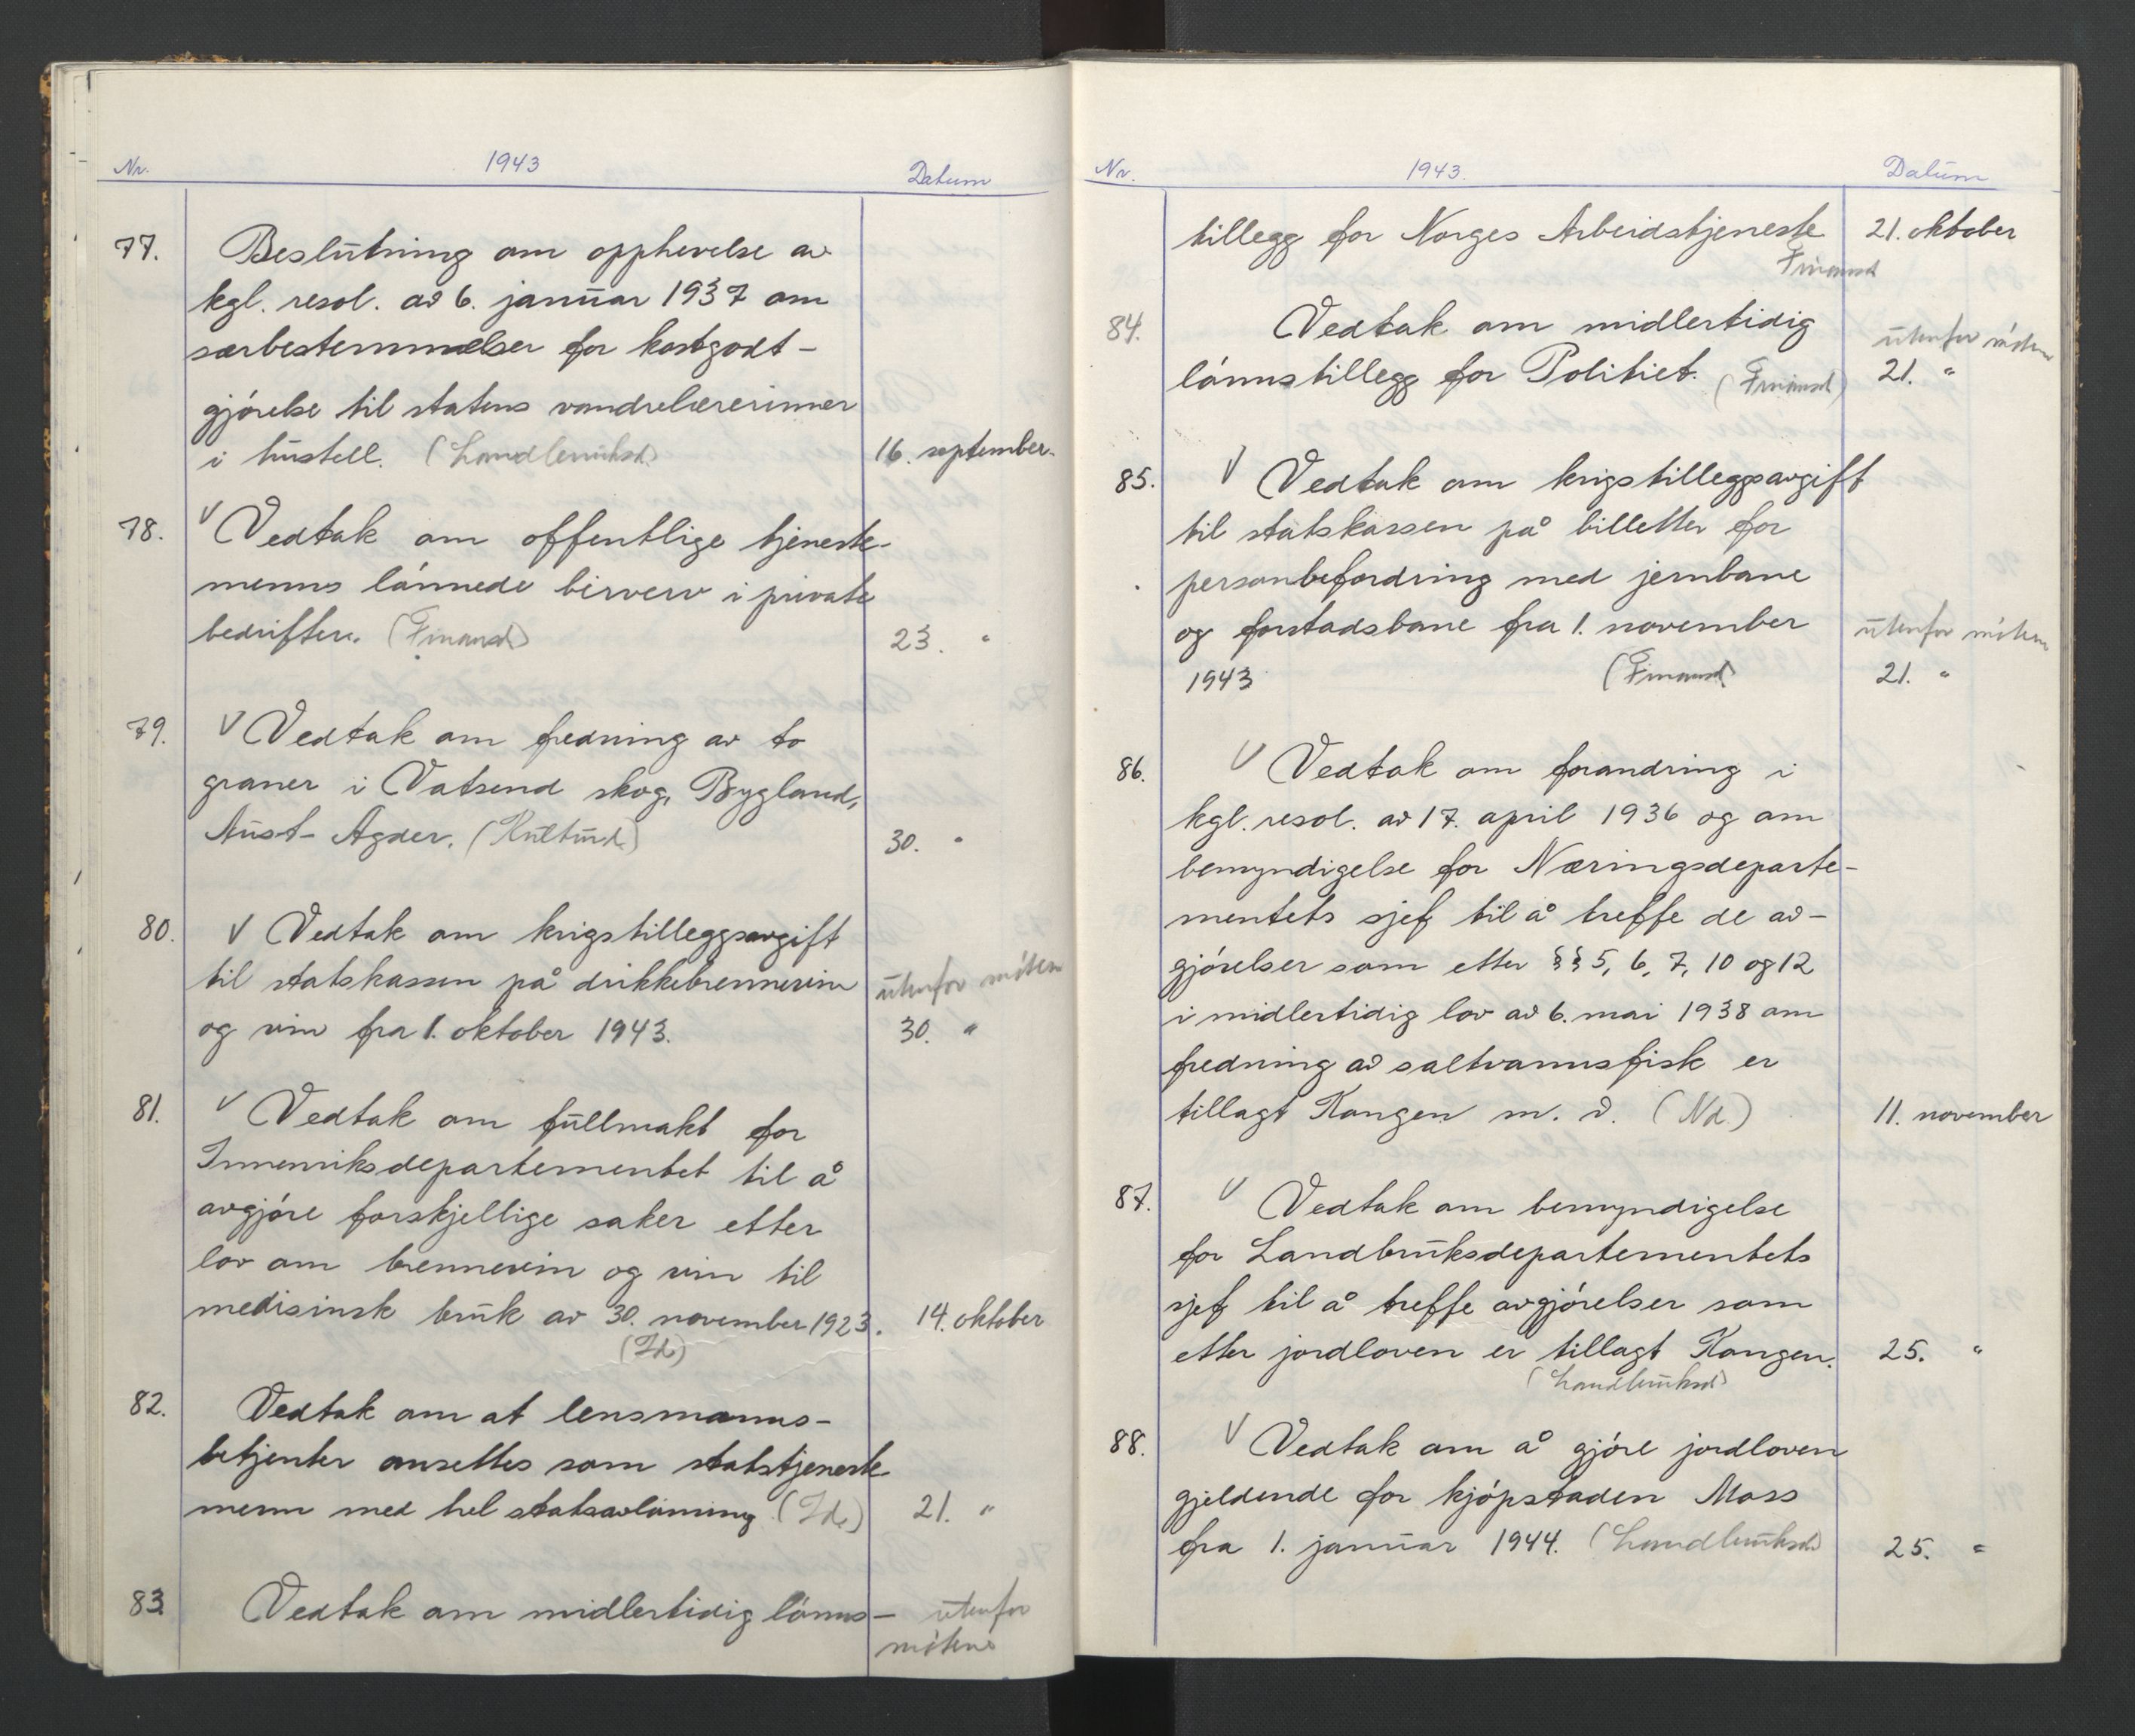 Nr. 1943 Datum
77. Beslutning om opphevelse av
kgl. resol. av 6. januar 1937 om
særbestemmelser for kostgodt-
gjørelse til statens vandrelærerinner
i husstell. (Landbruksd.) 16. september.
78. V Vedtak om offentlige tjeneste-
menns lønnede bierverv i private
bedrifter. (Finansd.) 23. "
79. V Vedtak om fredning av to
graner i Vatsend skog, Bygland,
Aust-Agder. (Kulturd.) 30. "
80. V Vedtak om krigstilleggsavgift
til statskassen på drikkebrennevin utenfor møtene
og vin fra 1. oktober 1943. 30. "
81. V Vedtak om fullmakt for
Innenriksdepartementet til å
avgjøre forskjellige saker etter
lov om brennevin og vin til
medisinsk bruk av 30. november 1923. 14. oktober
(Id.)
82. Vedtak om at lensmanns-
betjenter ansettes som statstjeneste-
menn med hel statsavlønning (Id.) 21. "
83. Vedtak om midlertidig lønns- utenfor
møtene
Nr. 1943. Datum
tillegg for Norges Arbeidstjeneste 21. oktober
Finansd
84. Vedtak om midlertidig utenfor møtene
lønnstillegg for Politiet. (Finansd) 21. "
85. V Vedtak om krigstilleggsavgift
til statskassen på billetter for
personbefordring med jernbane
og forstadsbane fra 1. november utenfor møtene
1943 (Finansd) 21. "
86. V Vedtak om forandring i
kgl. resol. av 17. april 1936 og om
bemyndigelse for Næringsdeparte-
mentets sjef til å treffe de av-
gjørelser som etter §§ 5, 6, 7, 10 og 12
i midlertidig lov av 6. mai 1938 om
fredning av saltvannsfisk er
tillagt Kongen m. v. (Nd.) 11. november
87. V Vedtak om bemyndigelse
for Landbruksdepartementets
sjef til å treffe avgjørelser som
etter jordloven er tillagt Kongen. 25. "
(Landbruksd)
88. V Vedtak om å gjøre jordloven
gjeldende for kjøpstaden Moss
fra 1. januar 1944. (Landbruksd) 25. "